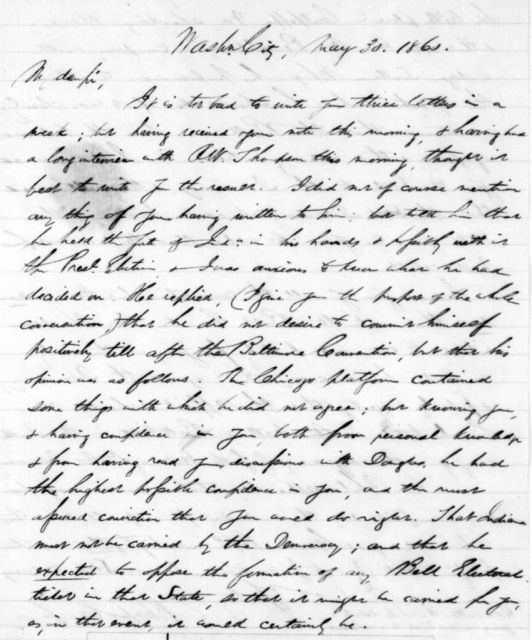 Washn. City, May 30. 1860.
My dear Sir,
It is too bad to write you three letters in a
week; but having received your note this morning, & having had
a long interview with R.W. Thompson this morning, thought it
best to write you the result. I did not of course mention
any thing of you having written to him: but told him that
he held the fate of Ind: in his hands & possibly with it
the Prest. Election & I was anxious to know what he had
decided on. He replied, (I give you the purport of the whole
conversation) that he did not desire to commit himself
positively till after the Baltimore Convention, but that his
opinion was as follows. The Chicago platform contained
some things with which he did not agree; but knowing you,
& having confidence in you, both from personal knowledge
& from having read your discussions with Douglas, he had
the highest possible confidence in you, and the most
assured conviction that you would do right. That Indiana
must not be carried by the Democracy; and that he
expected to oppose the formation of any Bell Electoral
ticket in that State, so that it might be carried for you,
as, in that event, it would certainly be.